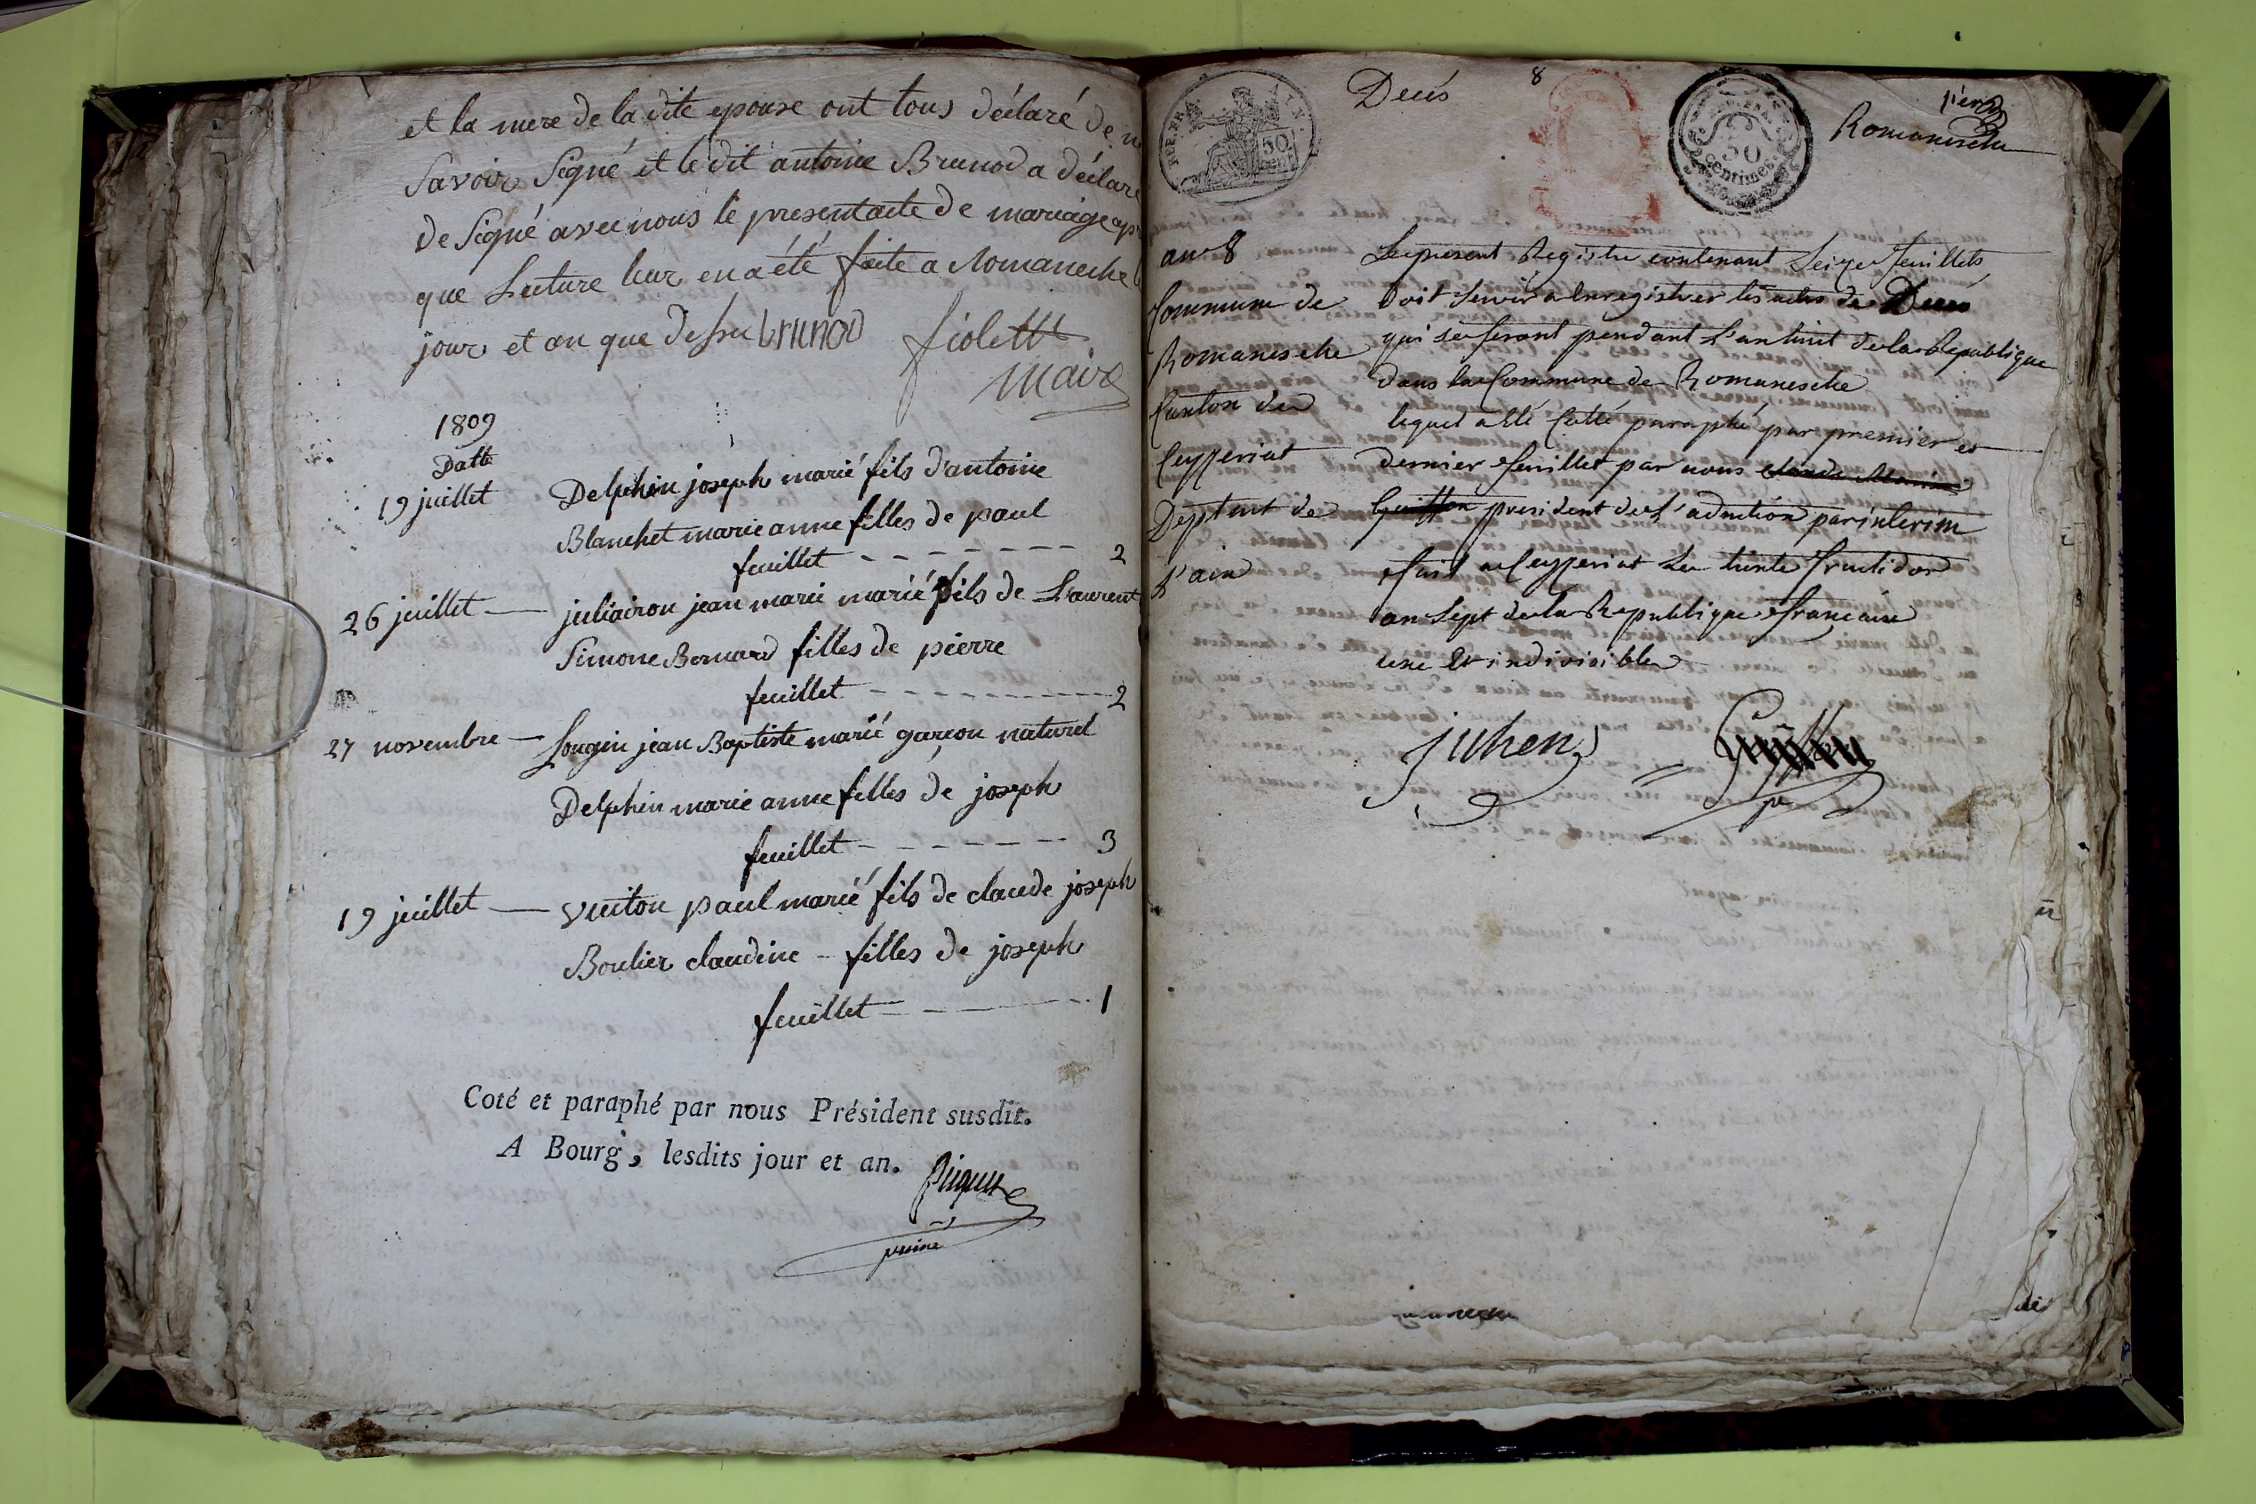 et la mere de la dite epouse ont tous déclaré de n
Savoir Signé et le dit antoine Brunod a déclaré
de Signé avec nous le present acte de mariage ap
que Lecture leur en a été faite a Romaneche
jour et an que dessu brunod fiolett
maire
1809
Datte
19 juillet Delphin joseph marié fils d'antoine
Blanchet marie anne filles de paul
feuillet - - - - - - - 2
26 juillet — juliairon jean marie marié fils de Laurent
Simone Bernard filles de pierre
feuillet - - - - - - - 2
27 novembre — Longin jean Baptiste marié garçon naturel
Delphin marie anne filles de joseph
feuillet - - - - - - - 3
19 juillet — vuiton paul marié fils de claude joseph
Boulier claudine - filles de joseph
feuillet - - - - 1
Coté et paraphé par nous Président susdit.
A Bourg, lesdits jour et an.
Decés
8
REP. FRA.
50 cent
50
centimes
Romanesche
an 8
Commune de
Romanesche
Canton de
Ceyzeriat
Deptmt de
L'ain
Le present Registre contenant Seize feuillets
Doit servir a Enregistrer les actes de Deces
qui se feront pendant L'an huit de la Republique
dans la Commune de Romanesche
lequel a été Cotté paraphé par premier et
dernier feuillet par nous claude Marie
Guiffon president de L'admtion par interim
fait a Ceyzeriat Le trente fructidor
an Sept de la Republique francaise
une Et indivisible